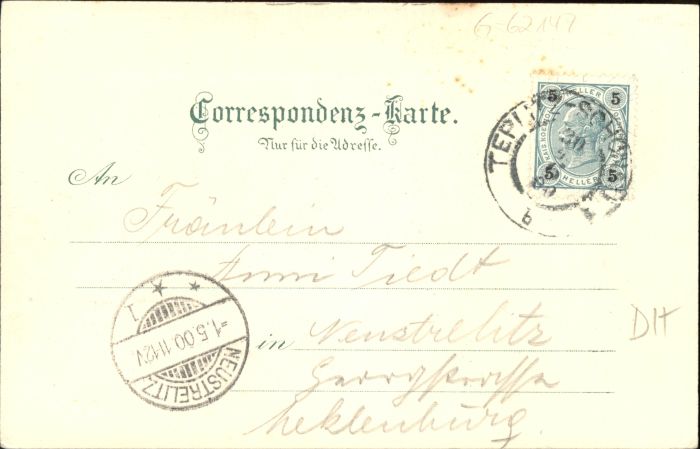 G-62147
Correspondenz-Karte.
Nur für die Adresse.
5 HELLER 5
5 HELLER 5
TEPLITZ-SCHÖNAU
b
An
Fräulein
Anni Tiedt
in Neustrelitz
Georgstrasse
Meklenburg.
1
-1.5.00.11-12V.
NEUSTRELITZ
DIt